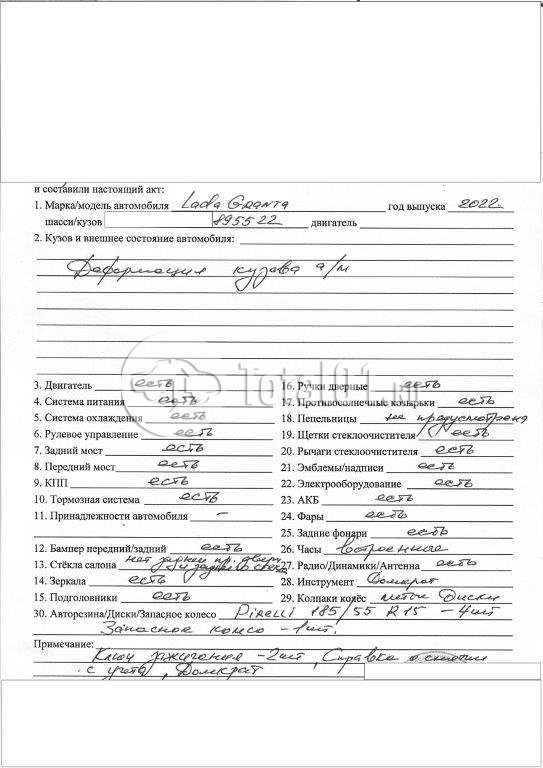 и составили настоящий акт:
1. Марка/модель автомобиля Lada Granta год выпуска 2022
шасси/кузов 895522 двигатель
2. Кузов и внешнее состояние автомобиля:
Деформация кузова а/м
Total01.ru
3. Двигатель есть
4. Система питания есть
5. Система охлаждения есть
6. Рулевое управление есть
7. Задний мост есть
8. Передний мост есть
9. КПП есть
10. Тормозная система есть
11. Принадлежности автомобиля –
12. Бампер передний/задний есть
13. Стёкла салона нет задней пр. двери
и заднего стекла
14. Зеркала есть
15. Подголовники есть
16. Ручки дверные есть
17. Противосолнечные козырьки есть
18. Пепельницы не предусмотрена
19. Щетки стеклоочистителя есть
20. Рычаги стеклоочистителя есть
21. Эмблемы/надписи есть
22. Электрооборудование есть
23. АКБ есть
24. Фары есть
25. Задние фонари есть
26. Часы встроенные
27. Радио/Динамики/Антенна есть
28. Инструмент Домкрат
29. Колпаки колёс литые диски
30. Авторезина/Диски/Запасное колесо Pirelli 185/55 R15 – 4шт
Запасное колесо – 1шт.
Примечание:
Ключ зажигания – 2шт, Справка о снятии
с учета, Домкрат